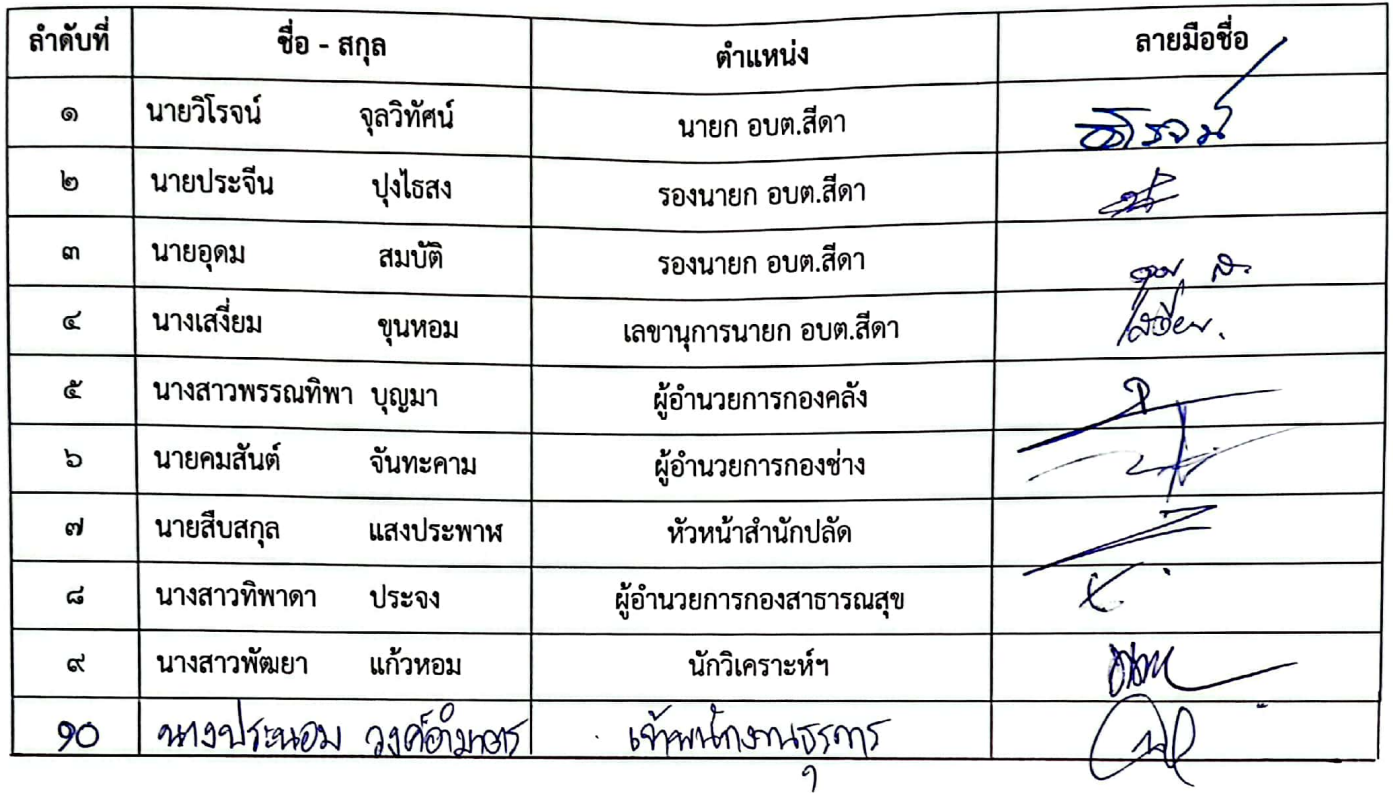 ลำดับที่ ชื่อ - สกุล ตำแหน่ง ลายมือชื่อ
๑ นายวิโรจน์ จุลวิทัศน์ นายก อบต.สีดา วิโรจน์
๒ นายประจีน ปุงไธสง รองนายก อบต.สีดา
๓ นายอุดม สมบัติ รองนายก อบต.สีดา
๔ นางเสงี่ยม ขุนหอม เลขานุการนายก อบต.สีดา
๕ นางสาวพรรณทิพา บุญมา ผู้อำนวยการกองคลัง
๖ นายคมสันต์ จันทะคาม ผู้อำนวยการกองช่าง
๗ นายสืบสกุล แสงประพาฬ หัวหน้าสำนักปลัด
๘ นางสาวทิพาดา ประจง ผู้อำนวยการกองสาธารณสุข
๙ นางสาวพัฒยา แก้วหอม นักวิเคราะห์ฯ
๑๐ นางประนอม วงศ์อำมาตร เจ้าพนักงานธุรการ